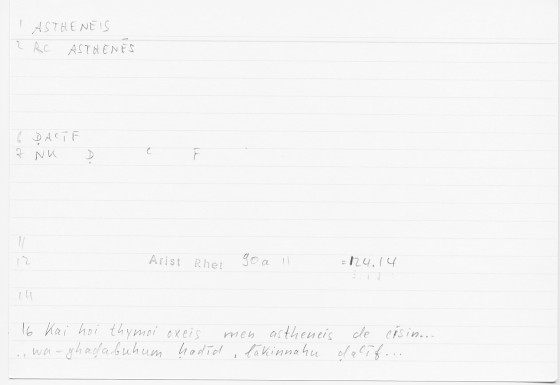 1 ASTHENEIS
2 AC ASTHENĒS
6 ḌAʿĪF
7 NK Ḍ ʿ F
11
12 Arist Rhet 90a 11 = 124.14
14
16 Kai hoi thymoi oxeis men astheneis de eisin...
,, wa-ghaḍabuhum ḥadīd, lākinnahu ḍaʿīf...